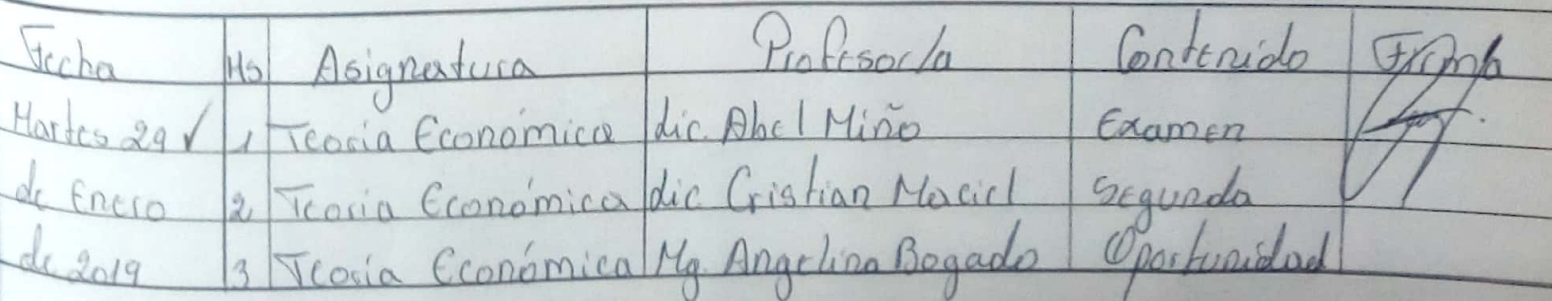 Fecha Hs Asignatura Profesor/a Contenido Firma
Martes 29 ✓ 1 Teoria Económica Lic. Abel Miño Examen
de Enero 2 Teoria Económica Lic Cristian Maciel Segunda
de 2019 3 Teoria Económica Mg. Angelina Bogado Oportunidad